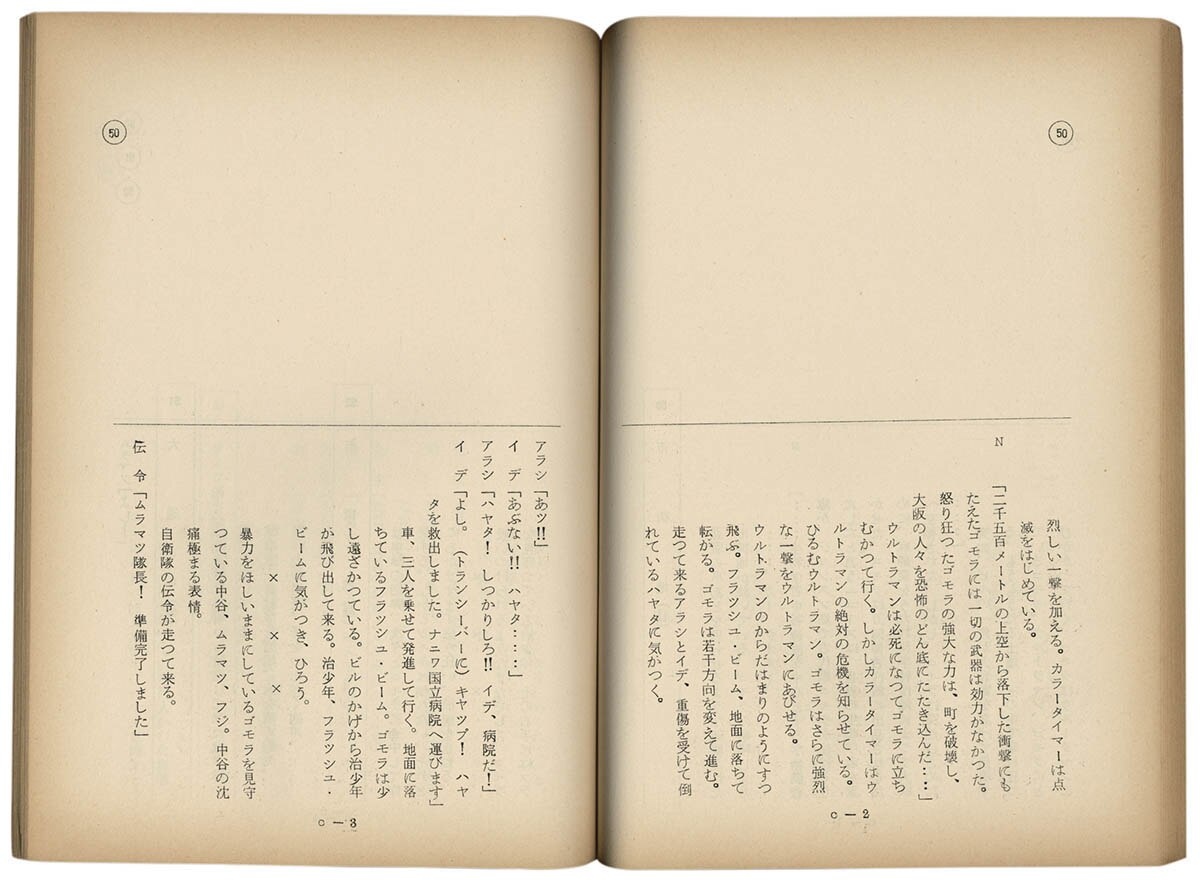 ㊿
烈しい一撃を加える。カラータイマーは点
滅をはじめている。
N
「二千五百メートルの上空から落下した衝撃にも
たえたゴモラには一切の武器は効力がなかつた。
怒り狂つたゴモラの強大な力は、町を破壊し、
大阪の人々を恐怖のどん底にたたき込んだ・・・」
ウルトラマンは必死になつてゴモラに立ち
むかつて行く。しかしカラータイマーはウ
ルトラマンの絶対の危機を知らせている。
ひるむウルトラマン。ゴモラはさらに強烈
な一撃をウルトラマンにあびせる。
ウルトラマンのからだはまりのようにすつ
飛ぶ。フラツシユ・ビーム、地面に落ちて
転がる。ゴモラは若干方向を変えて進む。
走つて来るアラシとイデ、重傷を受けて倒
れているハヤタに気がつく。
c－2
㊿
アラシ「あッ!!」
イ デ「あぶない!! ハヤタ・・・・」
アラシ「ハヤタ！ しつかりしろ!! イデ、病院だ！」
イ デ「よし。（トランシーバーに）キヤツプ！ ハヤ
タを救出しました。ナニワ国立病院へ運びます」
車、三人を乗せて発進して行く。地面に落
ちているフラツシユ・ビーム。ゴモラは少
し遠ざかつている。ビルのかげから治少年
が飛び出して来る。治少年、フラツシユ・
ビームに気がつき、ひろう。
× × ×
暴力をほしいままにしているゴモラを見守
つている中谷、ムラマツ、フジ。中谷の沈
痛極まる表情。
自衛隊の伝令が走つて来る。
伝 令「ムラマツ隊長！ 準備完了しました」
c－3